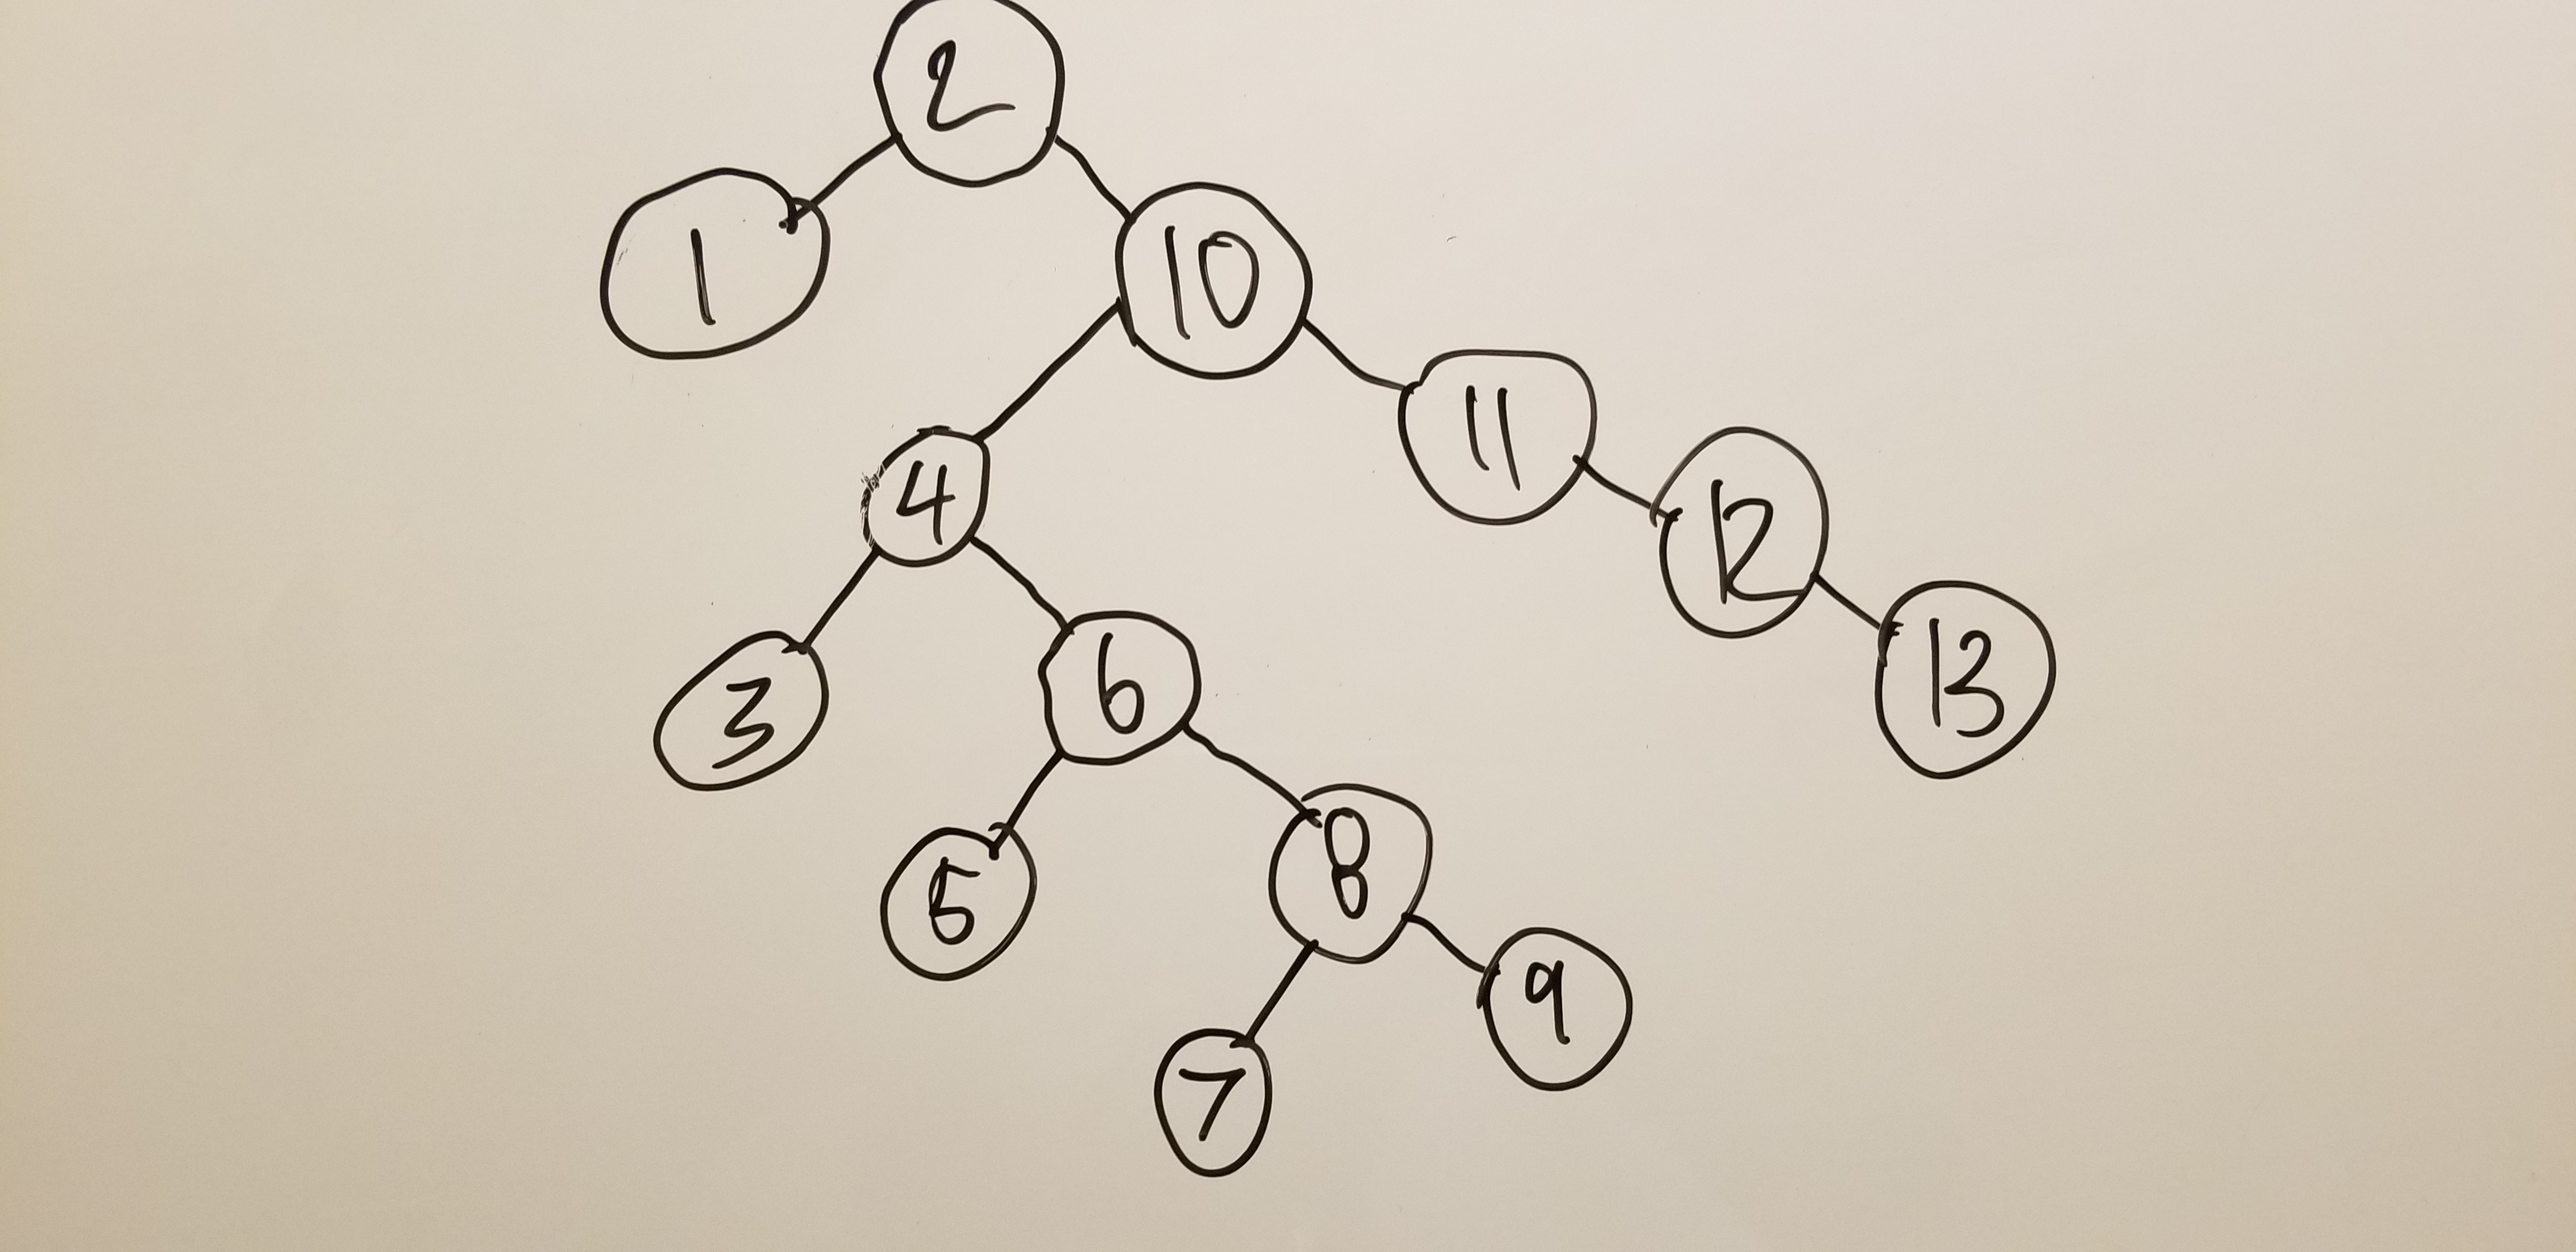 2
1
10
11
4
12
3
6
13
5
8
9
7